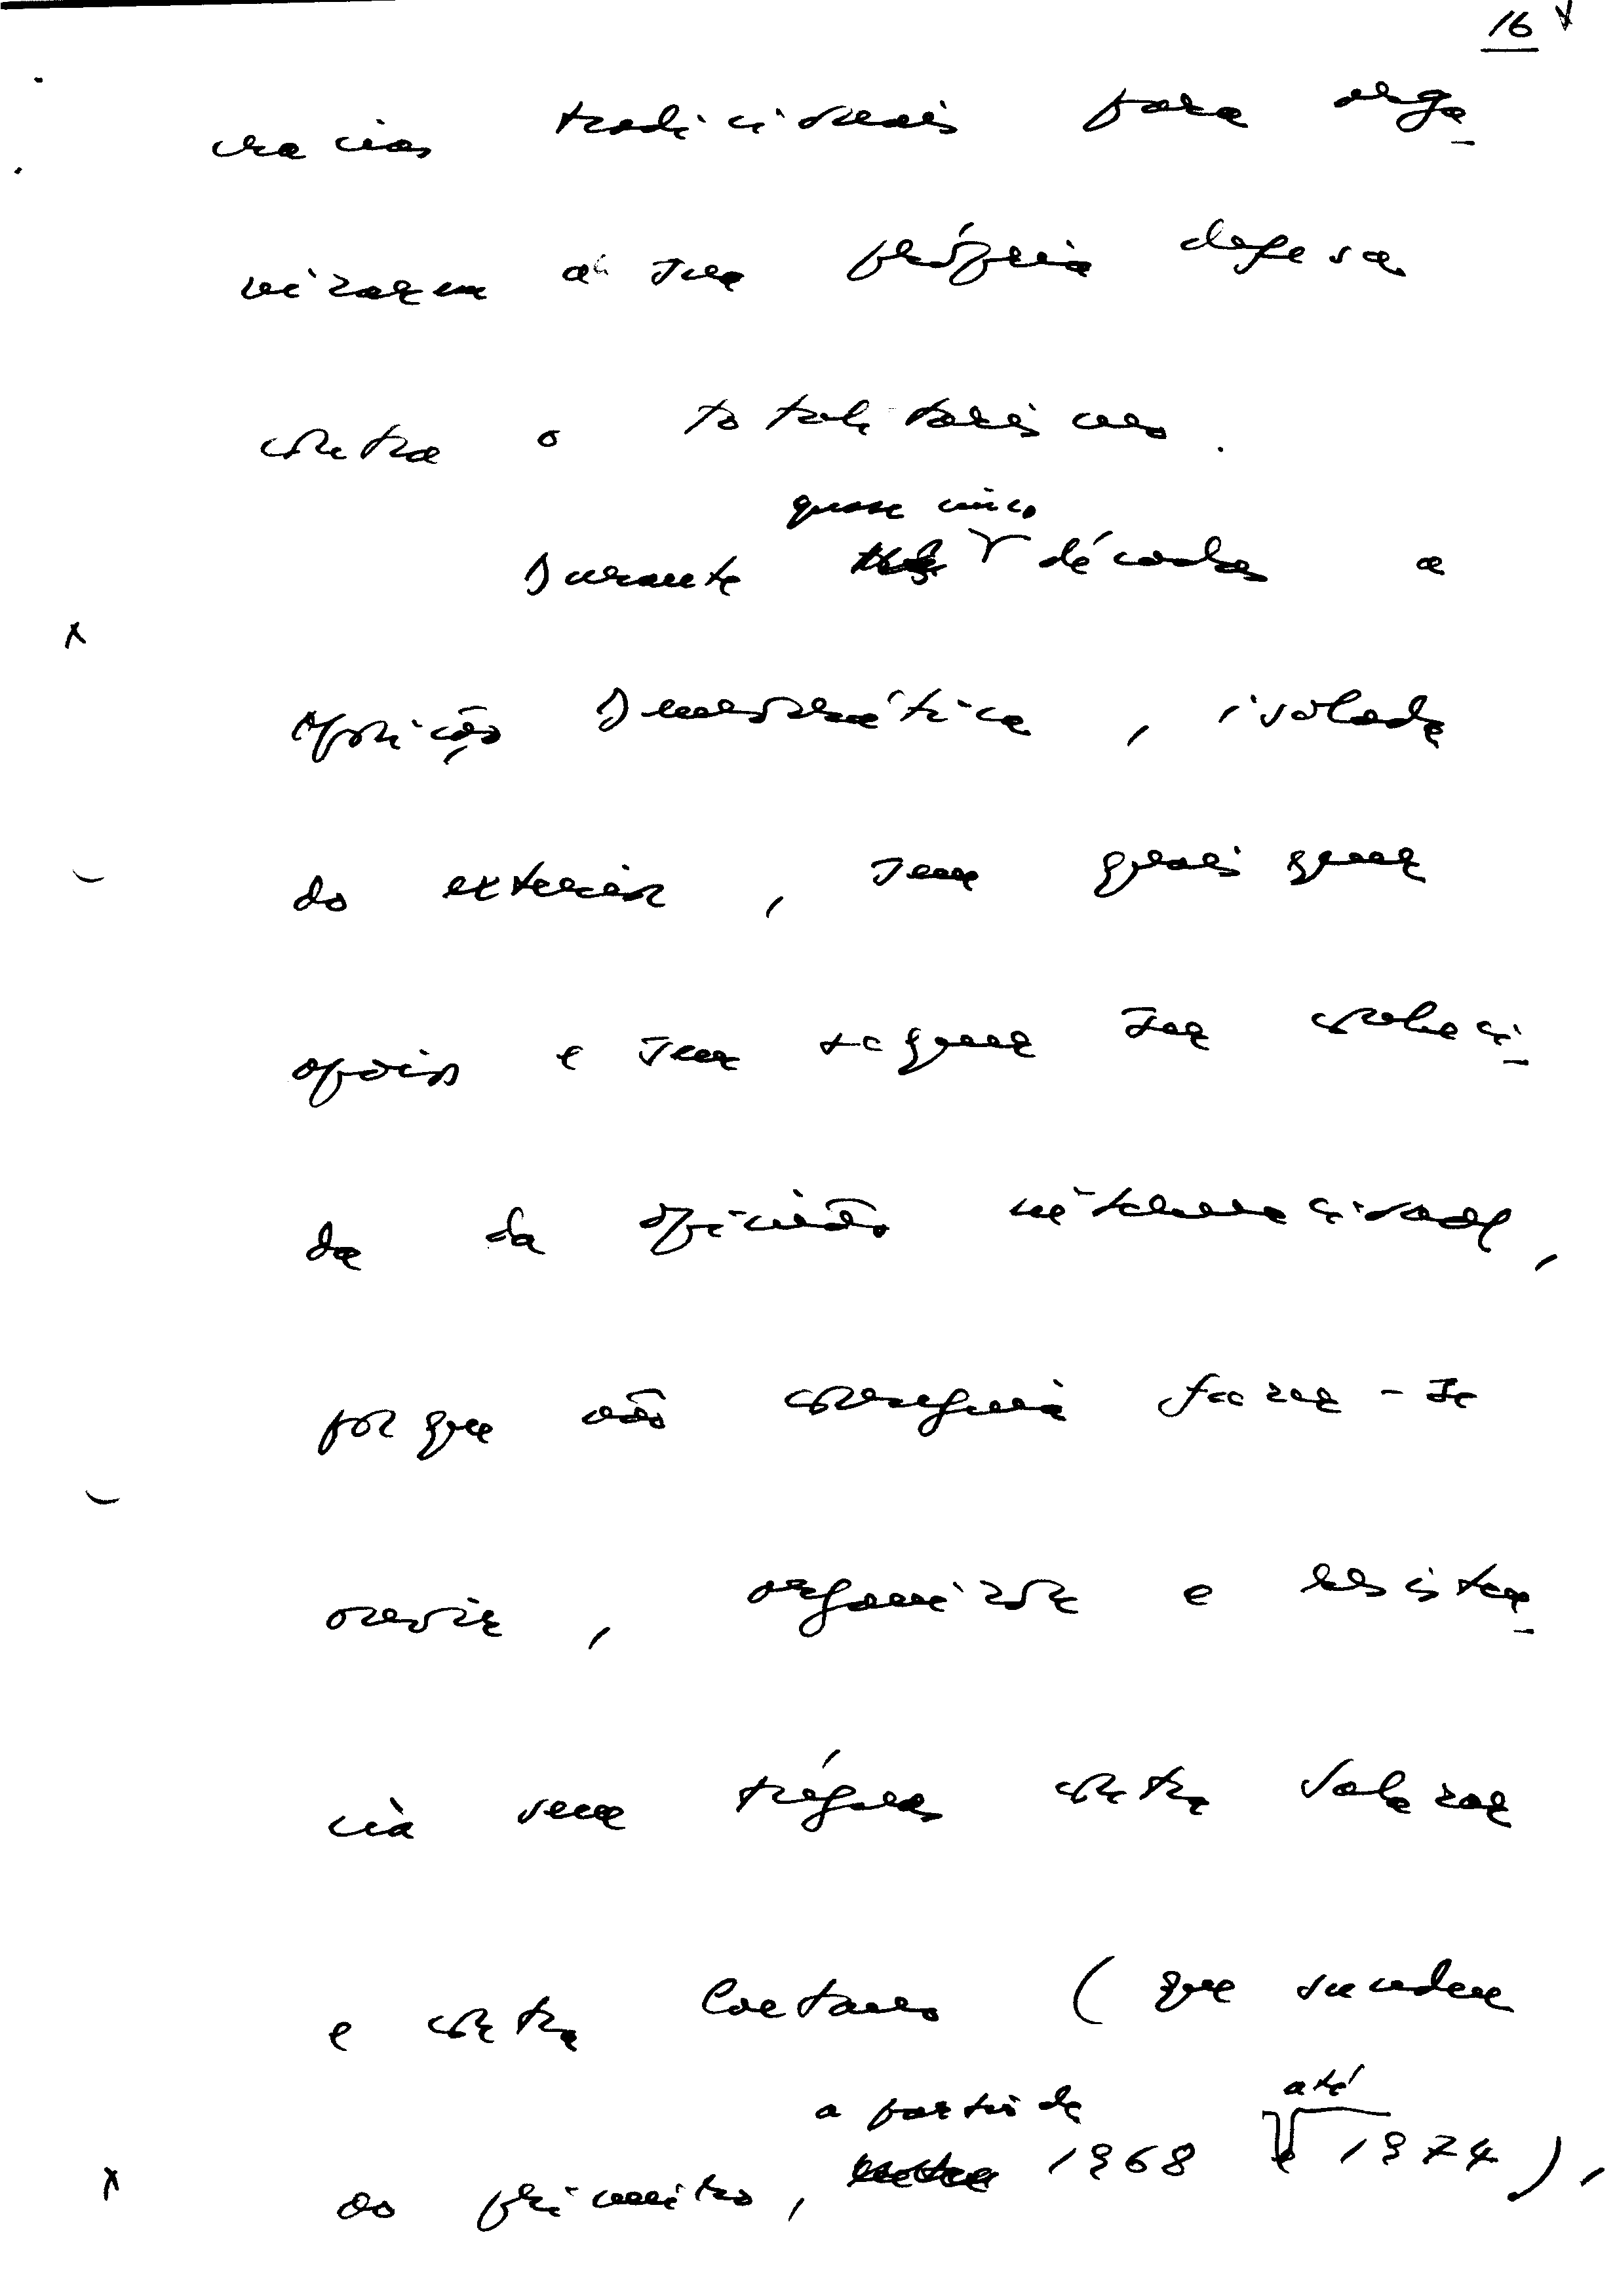 16
cracias tradicionais para orga
nizarem a sua própria defesa
contra o totalitarismo.
quase cinco
Durante três décadas a
oposição Democrática, isolada
do exterior, sem quaisquer
apoios e sem sequer ser conheci
da da opinião internacional,
porque não conseguia fazer-se
ouvir, organizou e resistên
cia sem tréguas contra Salazar
e contra Caetano (que sucedeu
a partir de até
ao primeiro, entre 1968 e 1974),